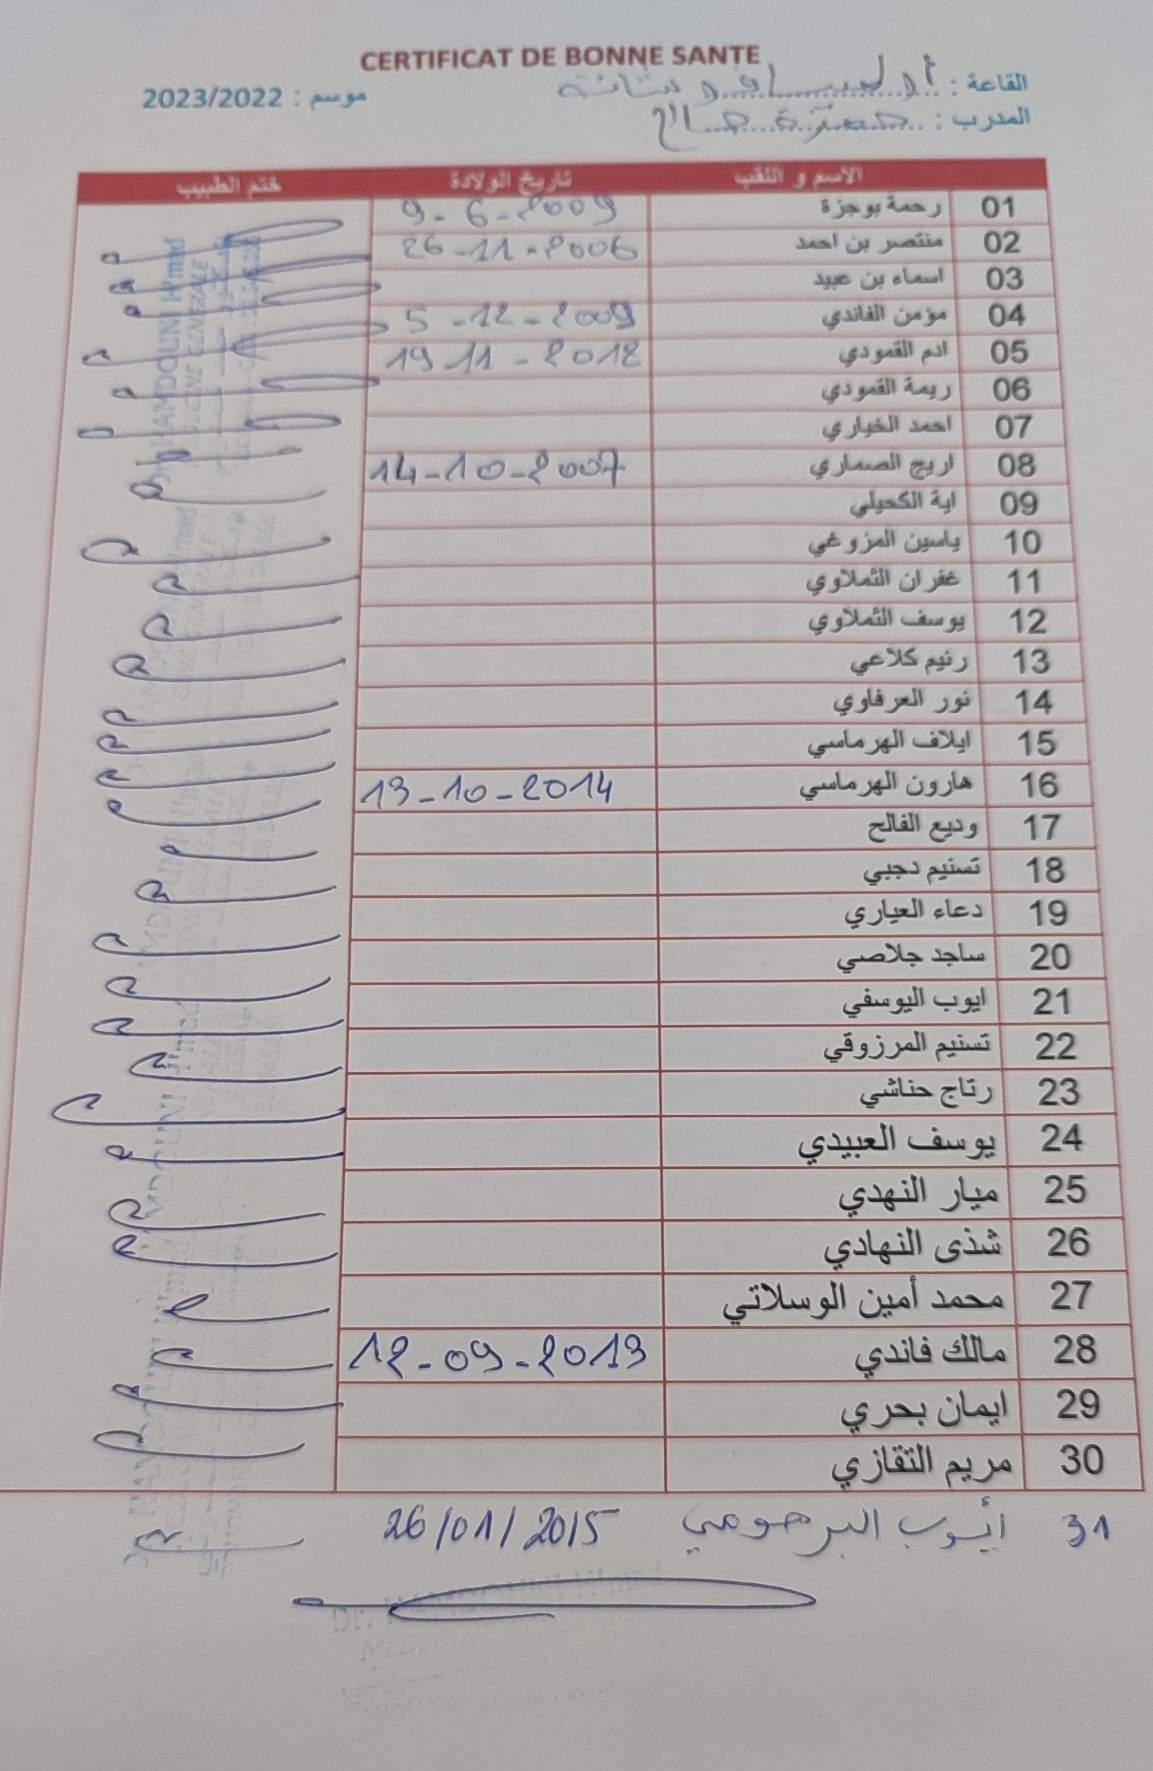 CERTIFICAT DE BONNE SANTE
القاعة :
موسم : 2023/2022
المدرب : حمزة صالح
الاسم و اللقب تاريخ الولادة ختم الطبيب
01 رحمة بوجزة 9-6-2009
02 منتصر بن احمد 26-11-2006
03 اسماء بن عبيد
04 مؤمن الفاندي 5-12-2009
05 ادم القمودي 19 11-2012
06 ريمة القمودي
07 احمد الخياري
08 اريج الصماري 14-10-2007
09 اية الكحيلي
10 ياسين المزوغي
11 غفران الثملاوي
12 يوسف الثملاوي
13 رنيم كلاعي
14 نور العرفاوي
15 ايلاف الهرماسي
16 هارون الهرماسي 13-10-2014
17 وديع الفالح
18 تسنيم دجبي
19 دعاء العياري
20 ساجد جلاصي
21 ايوب اليوسفي
22 تسنيم المرزوقي
23 رتاج حناشي
24 يوسف العبيدي
25 ميار النهدي
26 شذى النهادي
27 محمد أمين الوسلاتي
28 مالك فاندي 12-09-2013
29 ايمان بحري
30 مريم التقازي
31 أيوب البرهومي 26/01/2015
Dr. HAMDOUNI H'med